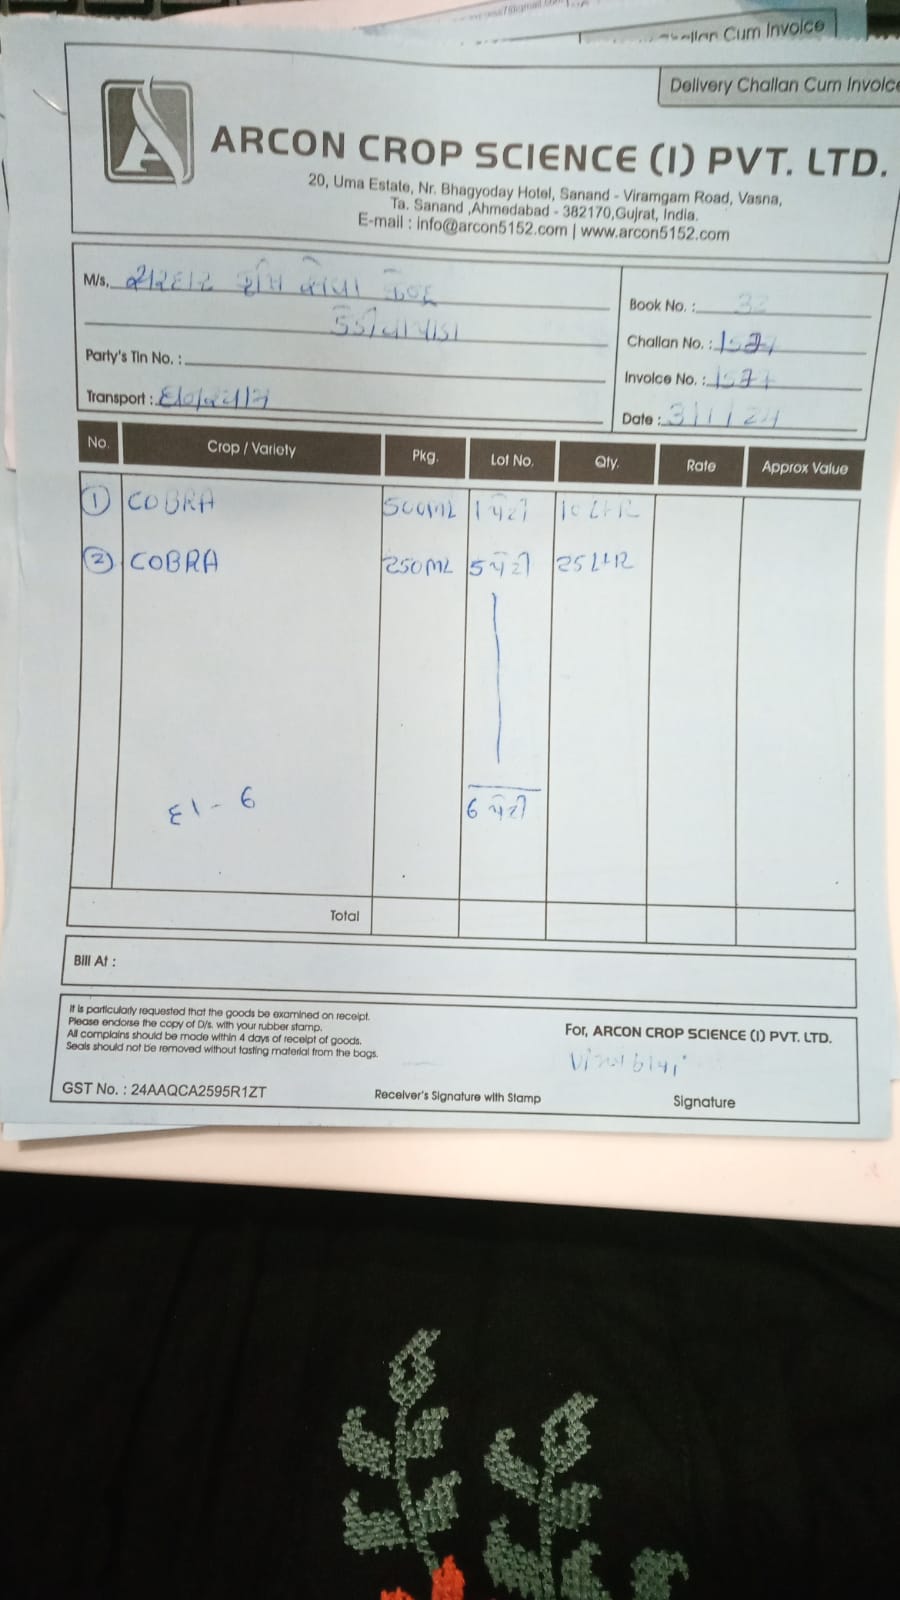 Cum Invoice
Delivery Challan Cum Invoice
ARCON CROP SCIENCE (I) PVT. LTD.
20, Uma Estate, Nr. Bhagyoday Hotel, Sanand - Viramgam Road, Vasna,
Ta. Sanand ,Ahmedabad - 382170,Gujrat, India.
E-mail : info@arcon5152.com | www.arcon5152.com
M/s.
Book No. : 32
Challan No. :
Party's Tin No. :
Invoice No. :
Transport :
Date : 3/1/24
No. Crop / Variety Pkg. Lot No. Qty. Rate Approx Value
① COBRA 500ML 1 પેટી 10 LTR
② COBRA 250ML 5 પેટી 25 LTR
6 પેટી
Total
Bill At :
It is particularly requested that the goods be examined on receipt.
Please endorse the copy of D/s. with your rubber stamp.
All complains should be made within 4 days of receipt of goods.
Seals should not be removed without tasting material from the bags.
For, ARCON CROP SCIENCE (I) PVT. LTD.
GST No. : 24AAQCA2595R1ZT
Receiver's Signature with Stamp
Signature